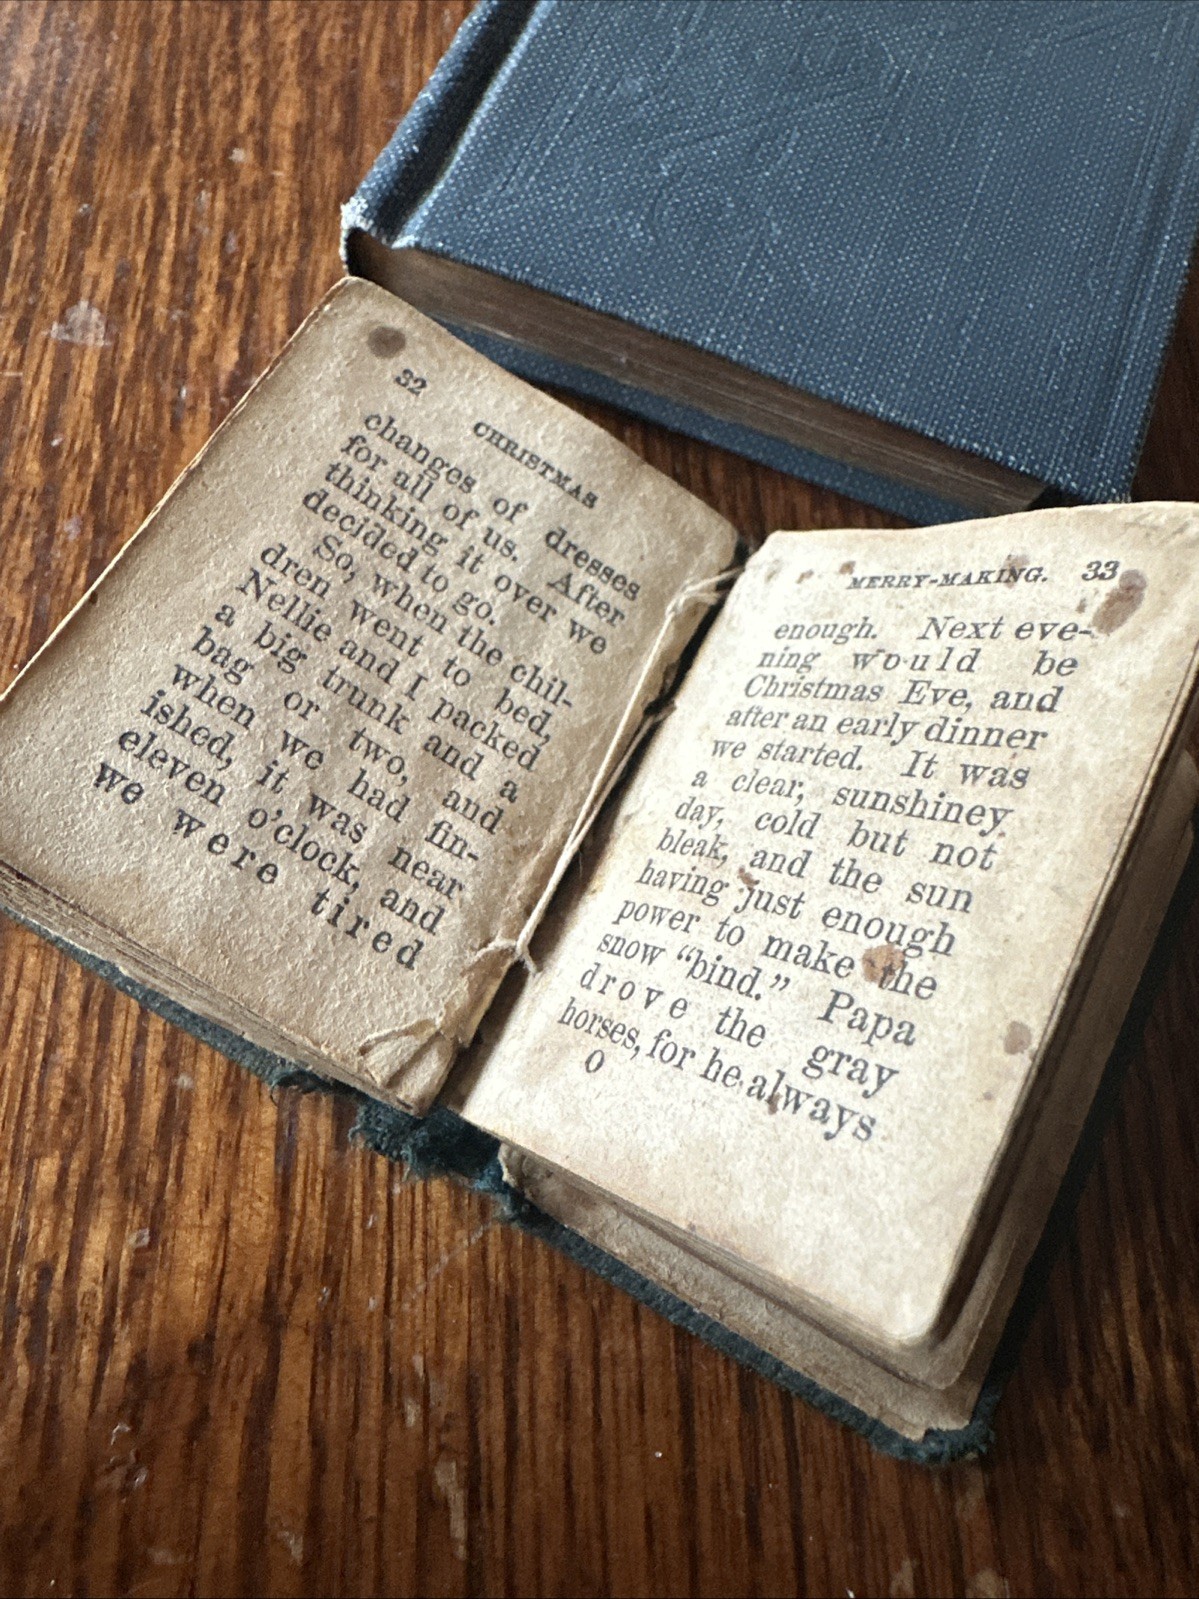 32
CHRISTMAS
changes of dresses
for all of us. After
thinking it over we
decided to go.
So, when the chil-
dren went to bed,
Nellie and I packed
a big trunk and a
bag or two, and
when we had fin-
ished, it was near
eleven o'clock, and
we were tired
MERRY-MAKING. 33
enough. Next eve-
ning would be
Christmas Eve, and
after an early dinner
we started. It was
a clear, sunshiney
day, cold but not
bleak, and the sun
having just enough
power to make the
snow “bind.” Papa
drove the gray
horses, for he always
O